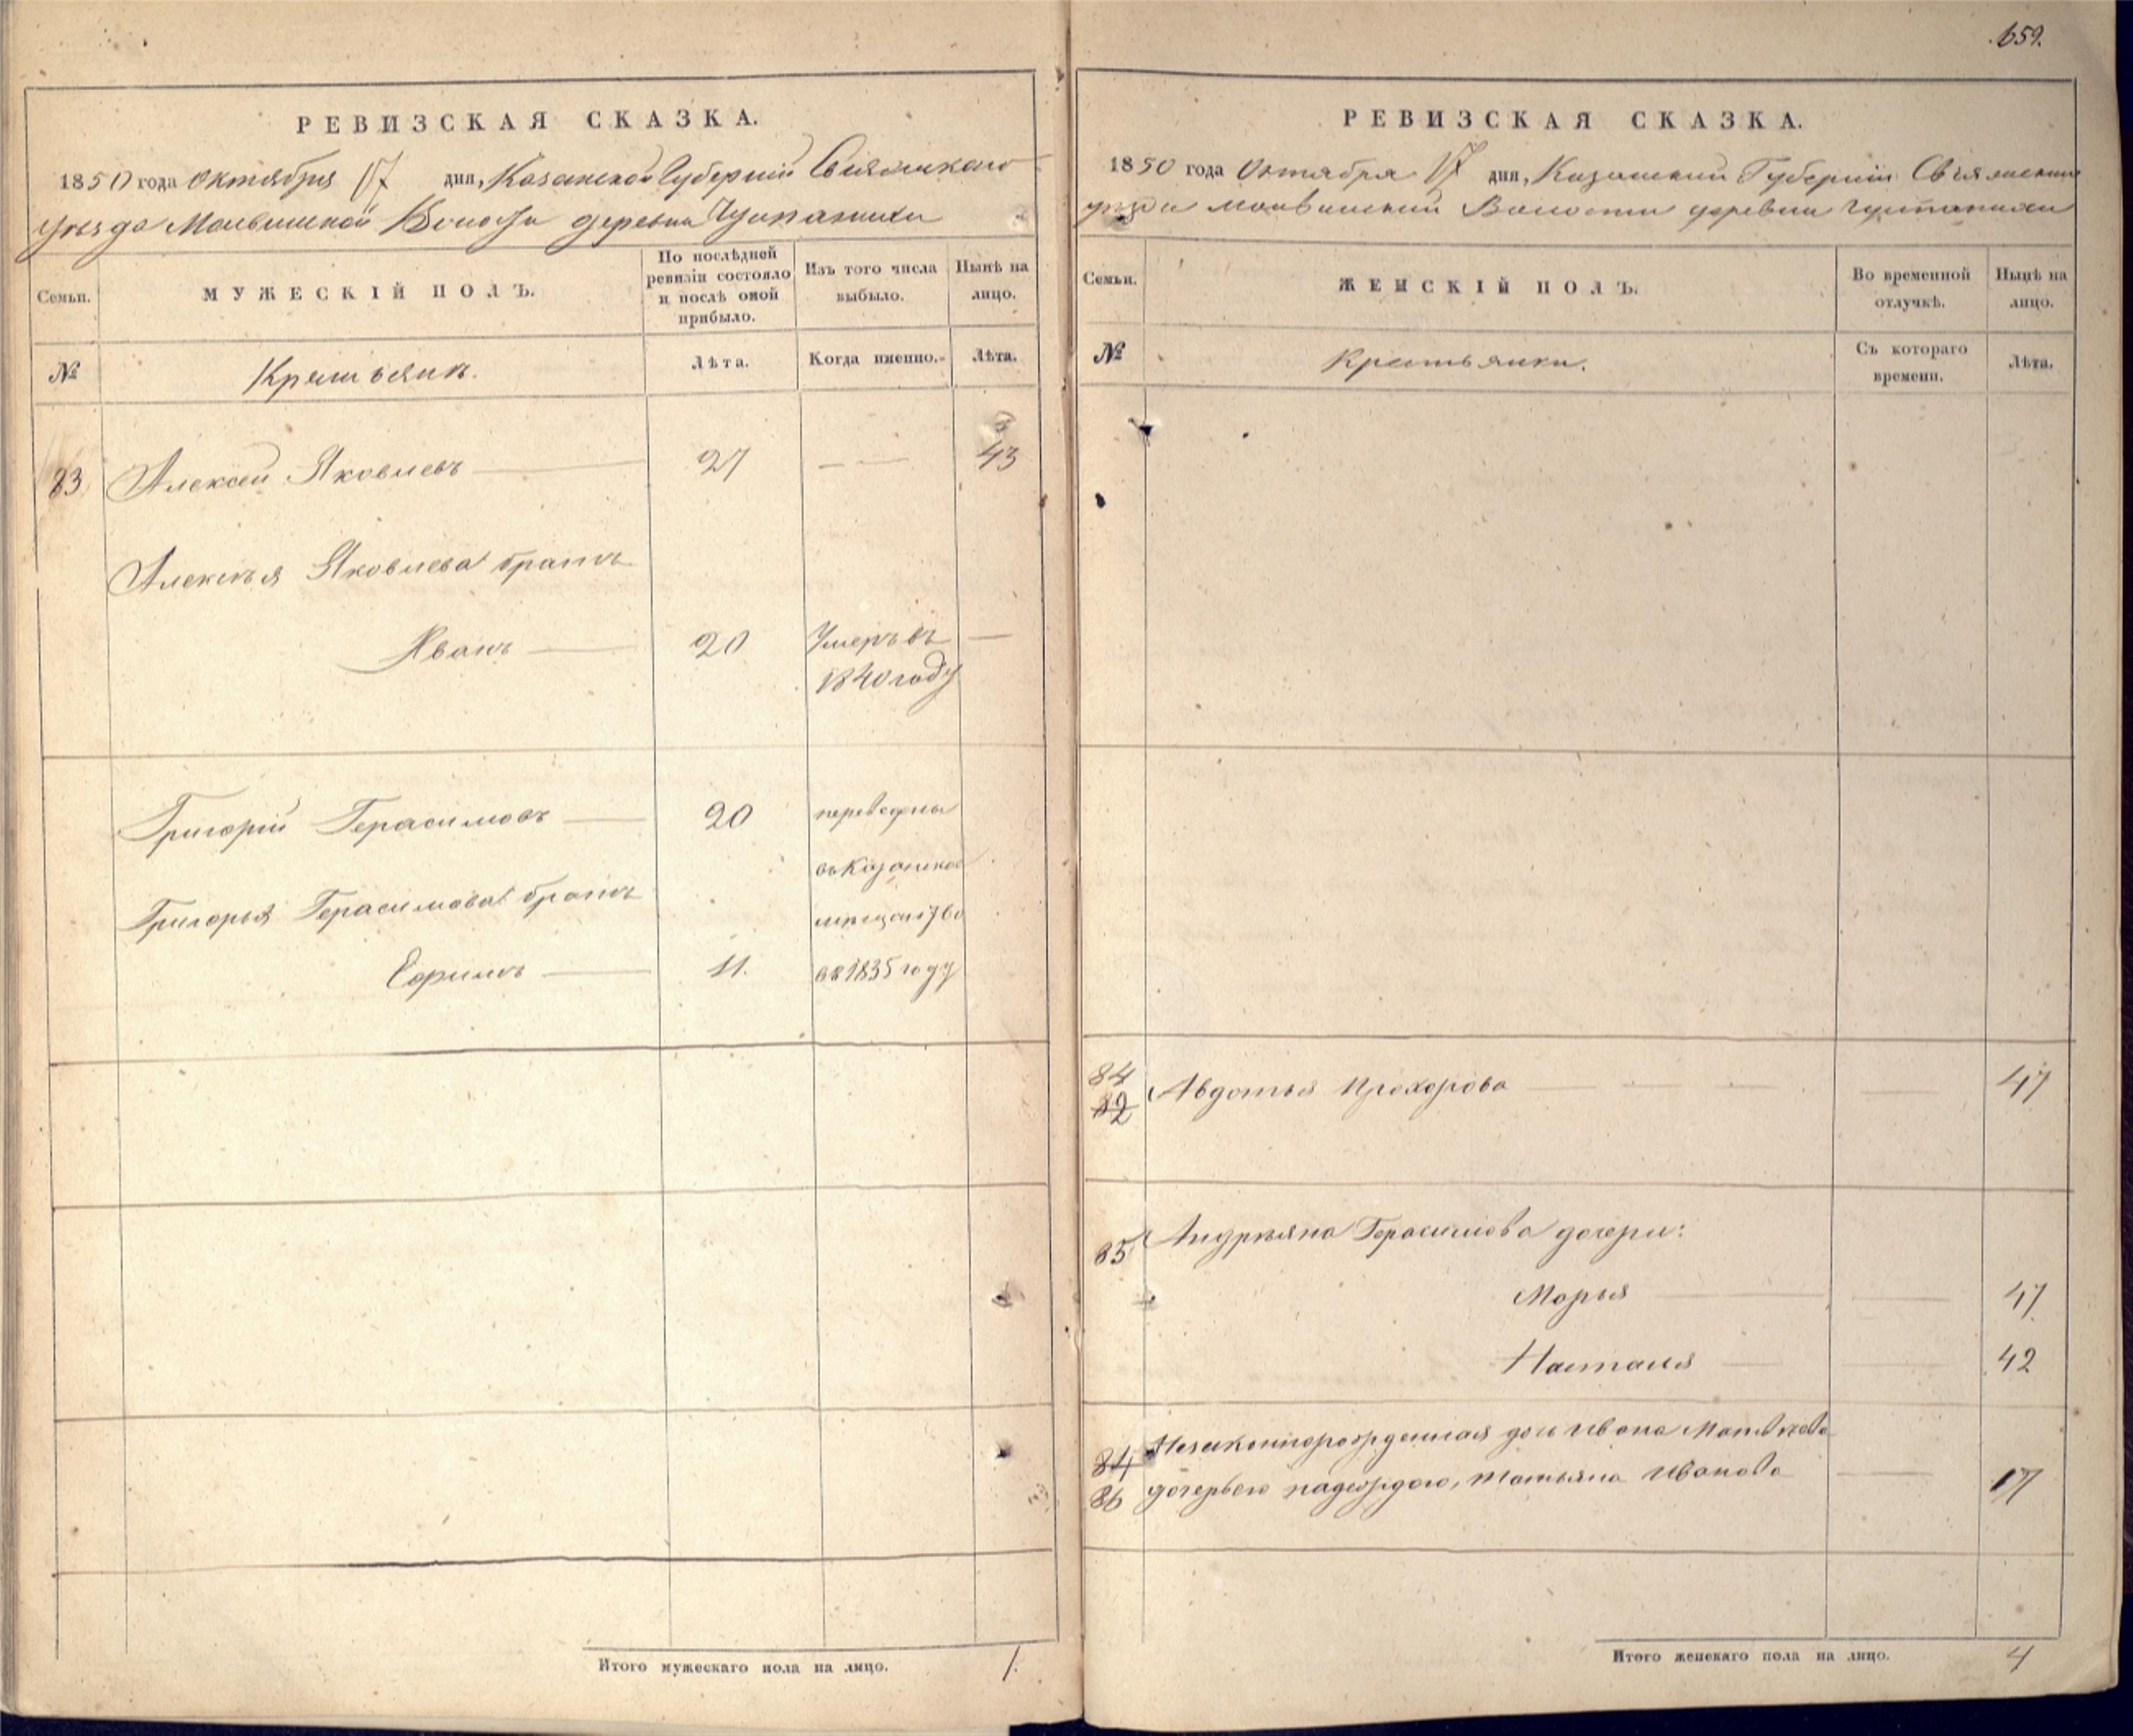 659.
РЕВИЗСКАЯ СКАЗКА.
1850 года Октября 17 дня, Казанской Губернiи Свiяжскаго
уѣзда Молвинской Волости деревни
Семьи.
МУЖЕСКIЙ ПОЛЪ.
По послѣдней ревизiи состояло и послѣ оной прибыло.
Изъ того числа выбыло.
Нынѣ на лицо.
№
Крестьянъ.
Лѣта.
Когда именно.
Лѣта.
83 Алексей Яковлевъ 27 — — 43
Алексѣя Яковлева братъ
Иванъ 20 Умеръ въ —
1840 году
Григорiй Герасимовъ 20 переведены
въ Казанское
Григорья Герасимова братъ мѣщанство
Ефимъ 11. въ 1835 году
Итого мужескаго пола на лицо. 1.
РЕВИЗСКАЯ СКАЗКА.
1850 года Октября 17 дня, Казанской Губернiи Свiяжскаго
уѣзда Молвинской Волости деревни
Семьи.
ЖЕНСКIЙ ПОЛЪ.
Во временной отлучкѣ.
Нынѣ на лицо.
№
Крестьянки.
Съ котораго времени.
Лѣта.
84
82 Авдотья Прохорова — 47
85 Андреяна Герасимова дочери:
Марья — 47
Наталья — 42
84 Незаконнорожденная дочь Ивана Матвѣева
86 дочерью Надеждою, Татьяна Иванова — 17
Итого женскаго пола на лицо. 4